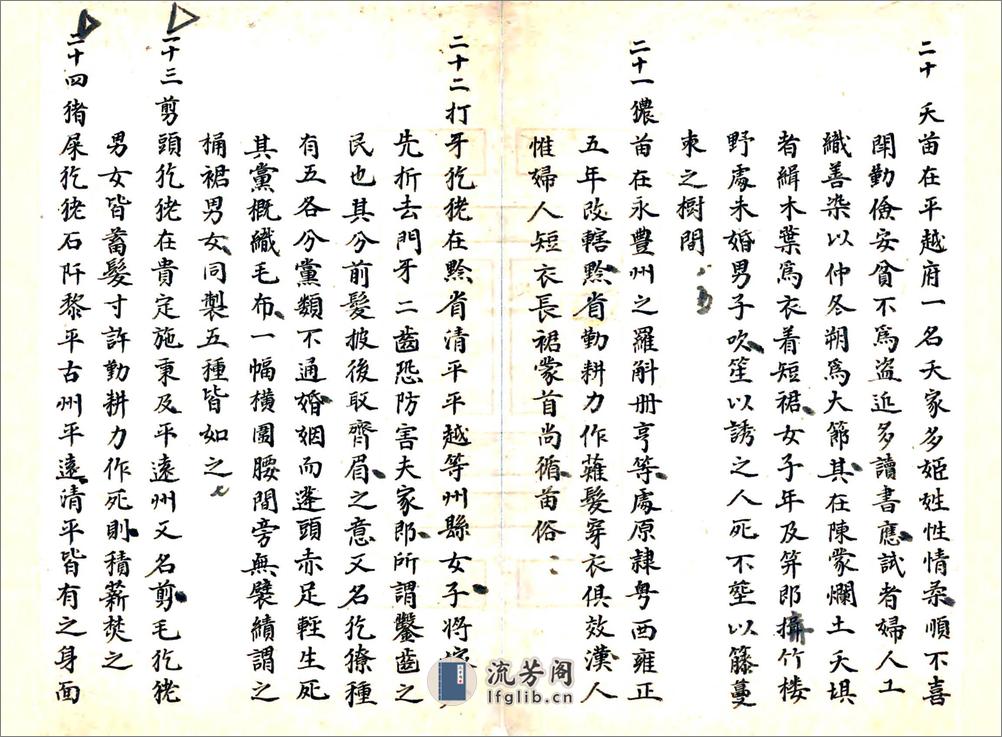 二十 夭苗在平越府一名夭家多姬姓性情柔順不喜
鬪勤儉安貧不爲盗近多讀書應試者婦人工
織善染以仲冬朔爲大節其在陳蒙爛土夭垻
者緝木葉爲衣着短裙女子年及笄即搆竹楼
野處未婚男子吹笙以誘之人死不塟以籐蔓
束之樹間
二十一 儂苗在永豐州之羅斛册亨等處原隸粤西雍正
五年改轄黔省勤耕力作薙髮穿衣俱效漢人
惟婦人短衣長裙蒙首尚循苗俗
二十二 打牙犵狫在黔省清平平越等州縣女子將嫁
先折去門牙二齒恐防害夫家即所謂鑿齒之
民也其分前髮披後取齊眉之意又名犵獠種
有五各分黨類不通婚姻而蓬頭赤足輕生死
其黨概織毛布一幅橫圍腰間旁無襞績謂之
桶裙男女同製五種皆如之
二十三 剪頭犵狫在貴定施秉及平遠州又名剪毛犵狫
男女皆蓄髮寸許勤耕力作死則積薪焚之
二十四 猪屎犵狫石阡黎平古州平遠清平皆有之身面
流芳阁
lfglib.cn